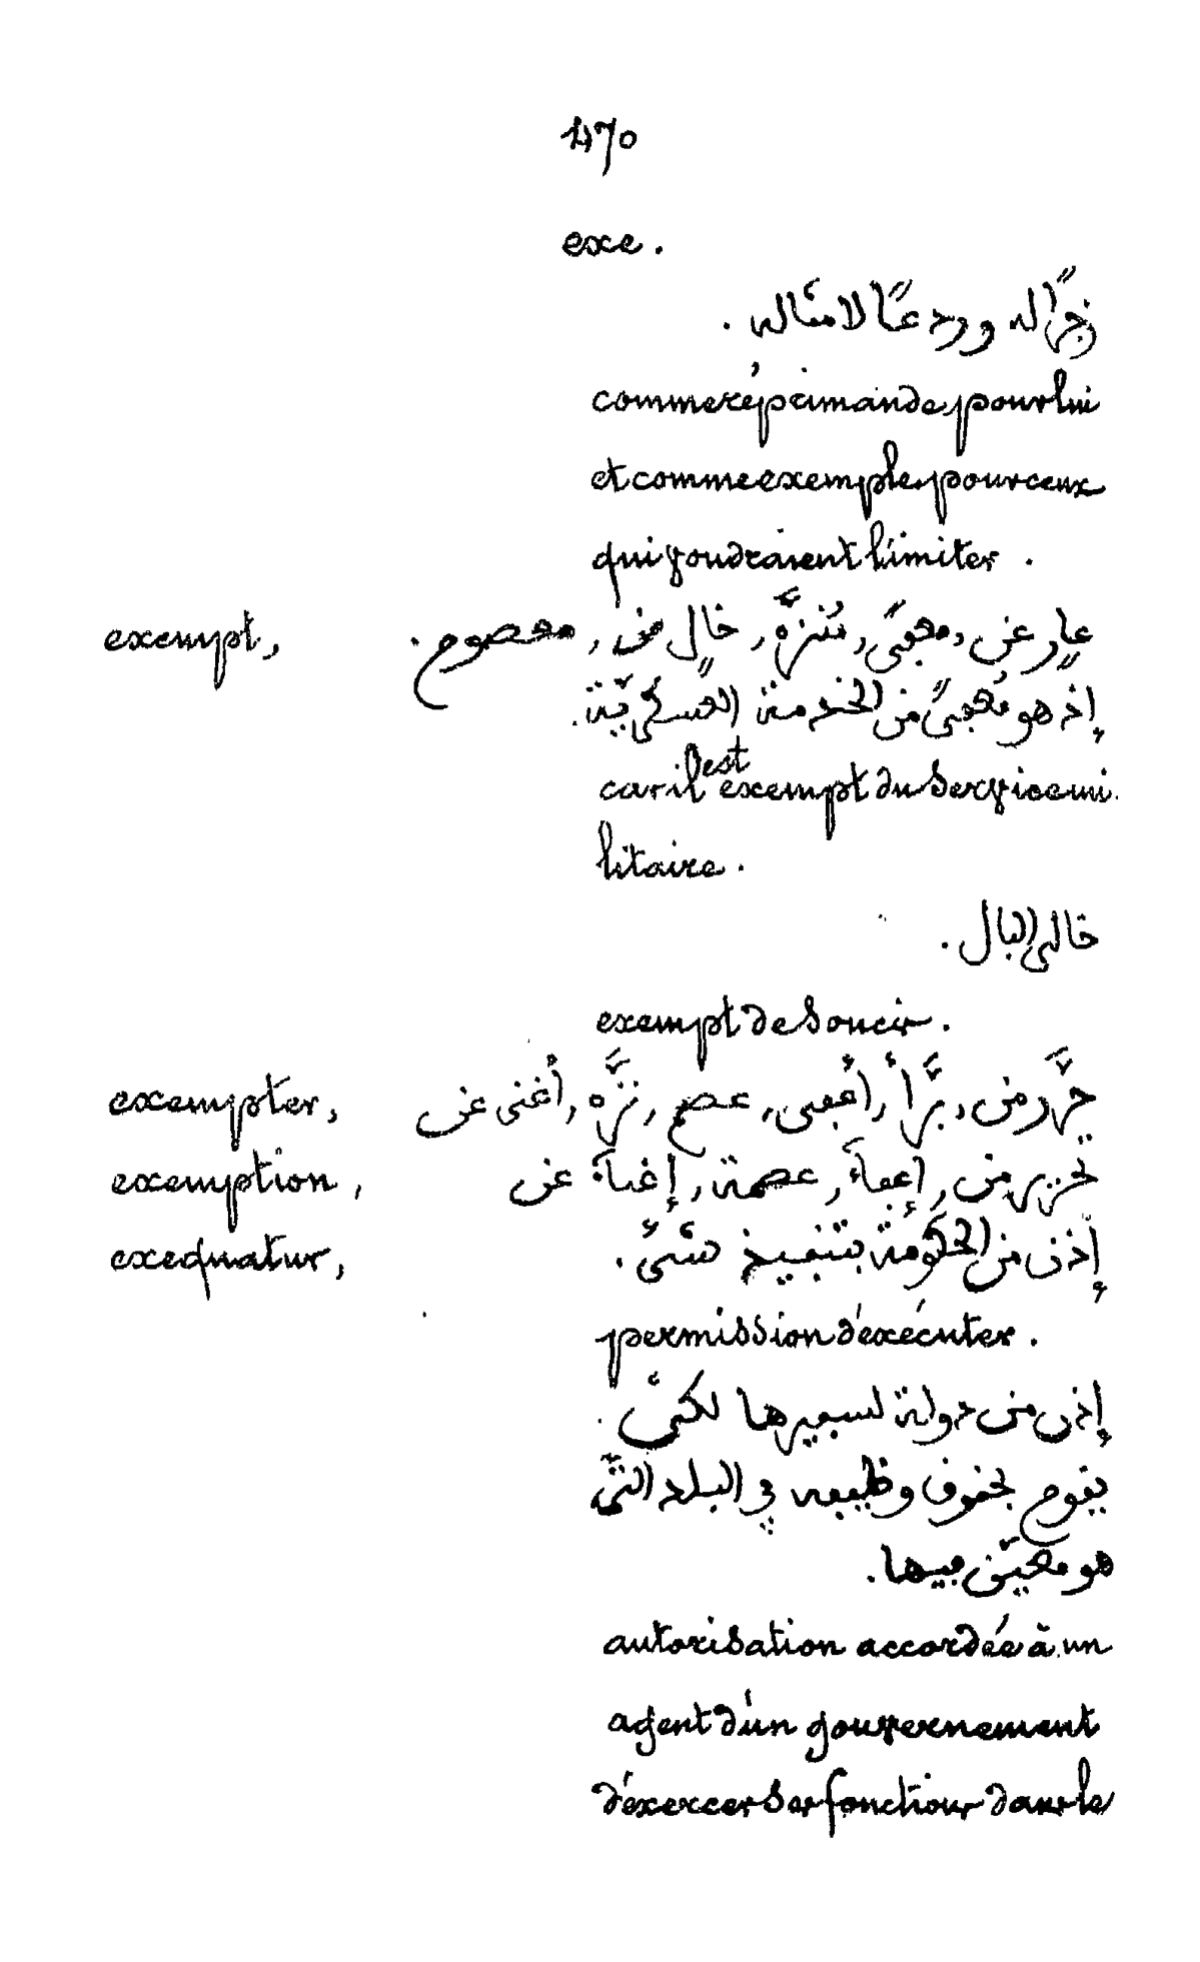 470
exe.
زجرًا له وردعًا لامثاله.
comme réprimande pour lui
et comme exemple pour ceux
qui voudraient l'imiter.
exempt, عارٍ عن, معفىً, مُنزَّه, خالٍ من, معصوم.
إذ هو مُعفىً من الخدمة العسكريّة.
car il est exempt du service mi-
litaire.
خالي البال.
exempt de soucis.
exempter, حرَّر من, برَّأ, أعفى, عصم, نزَّه, أغنى عن
exemption, تحرير من, إعفاءَ, عصمة, إغناءَ عن
exequatur, إذن من الحكومة بتنفيذ شىء.
permission d'exécuter.
إذن من دولة لسفيرها لكىْ
يقوم بحقوق وظيفته في البلد التّى
هو معيّن فيها.
autorisation accordée à un
agent d'un gouvernement
d'exercer ses fonctions dans le